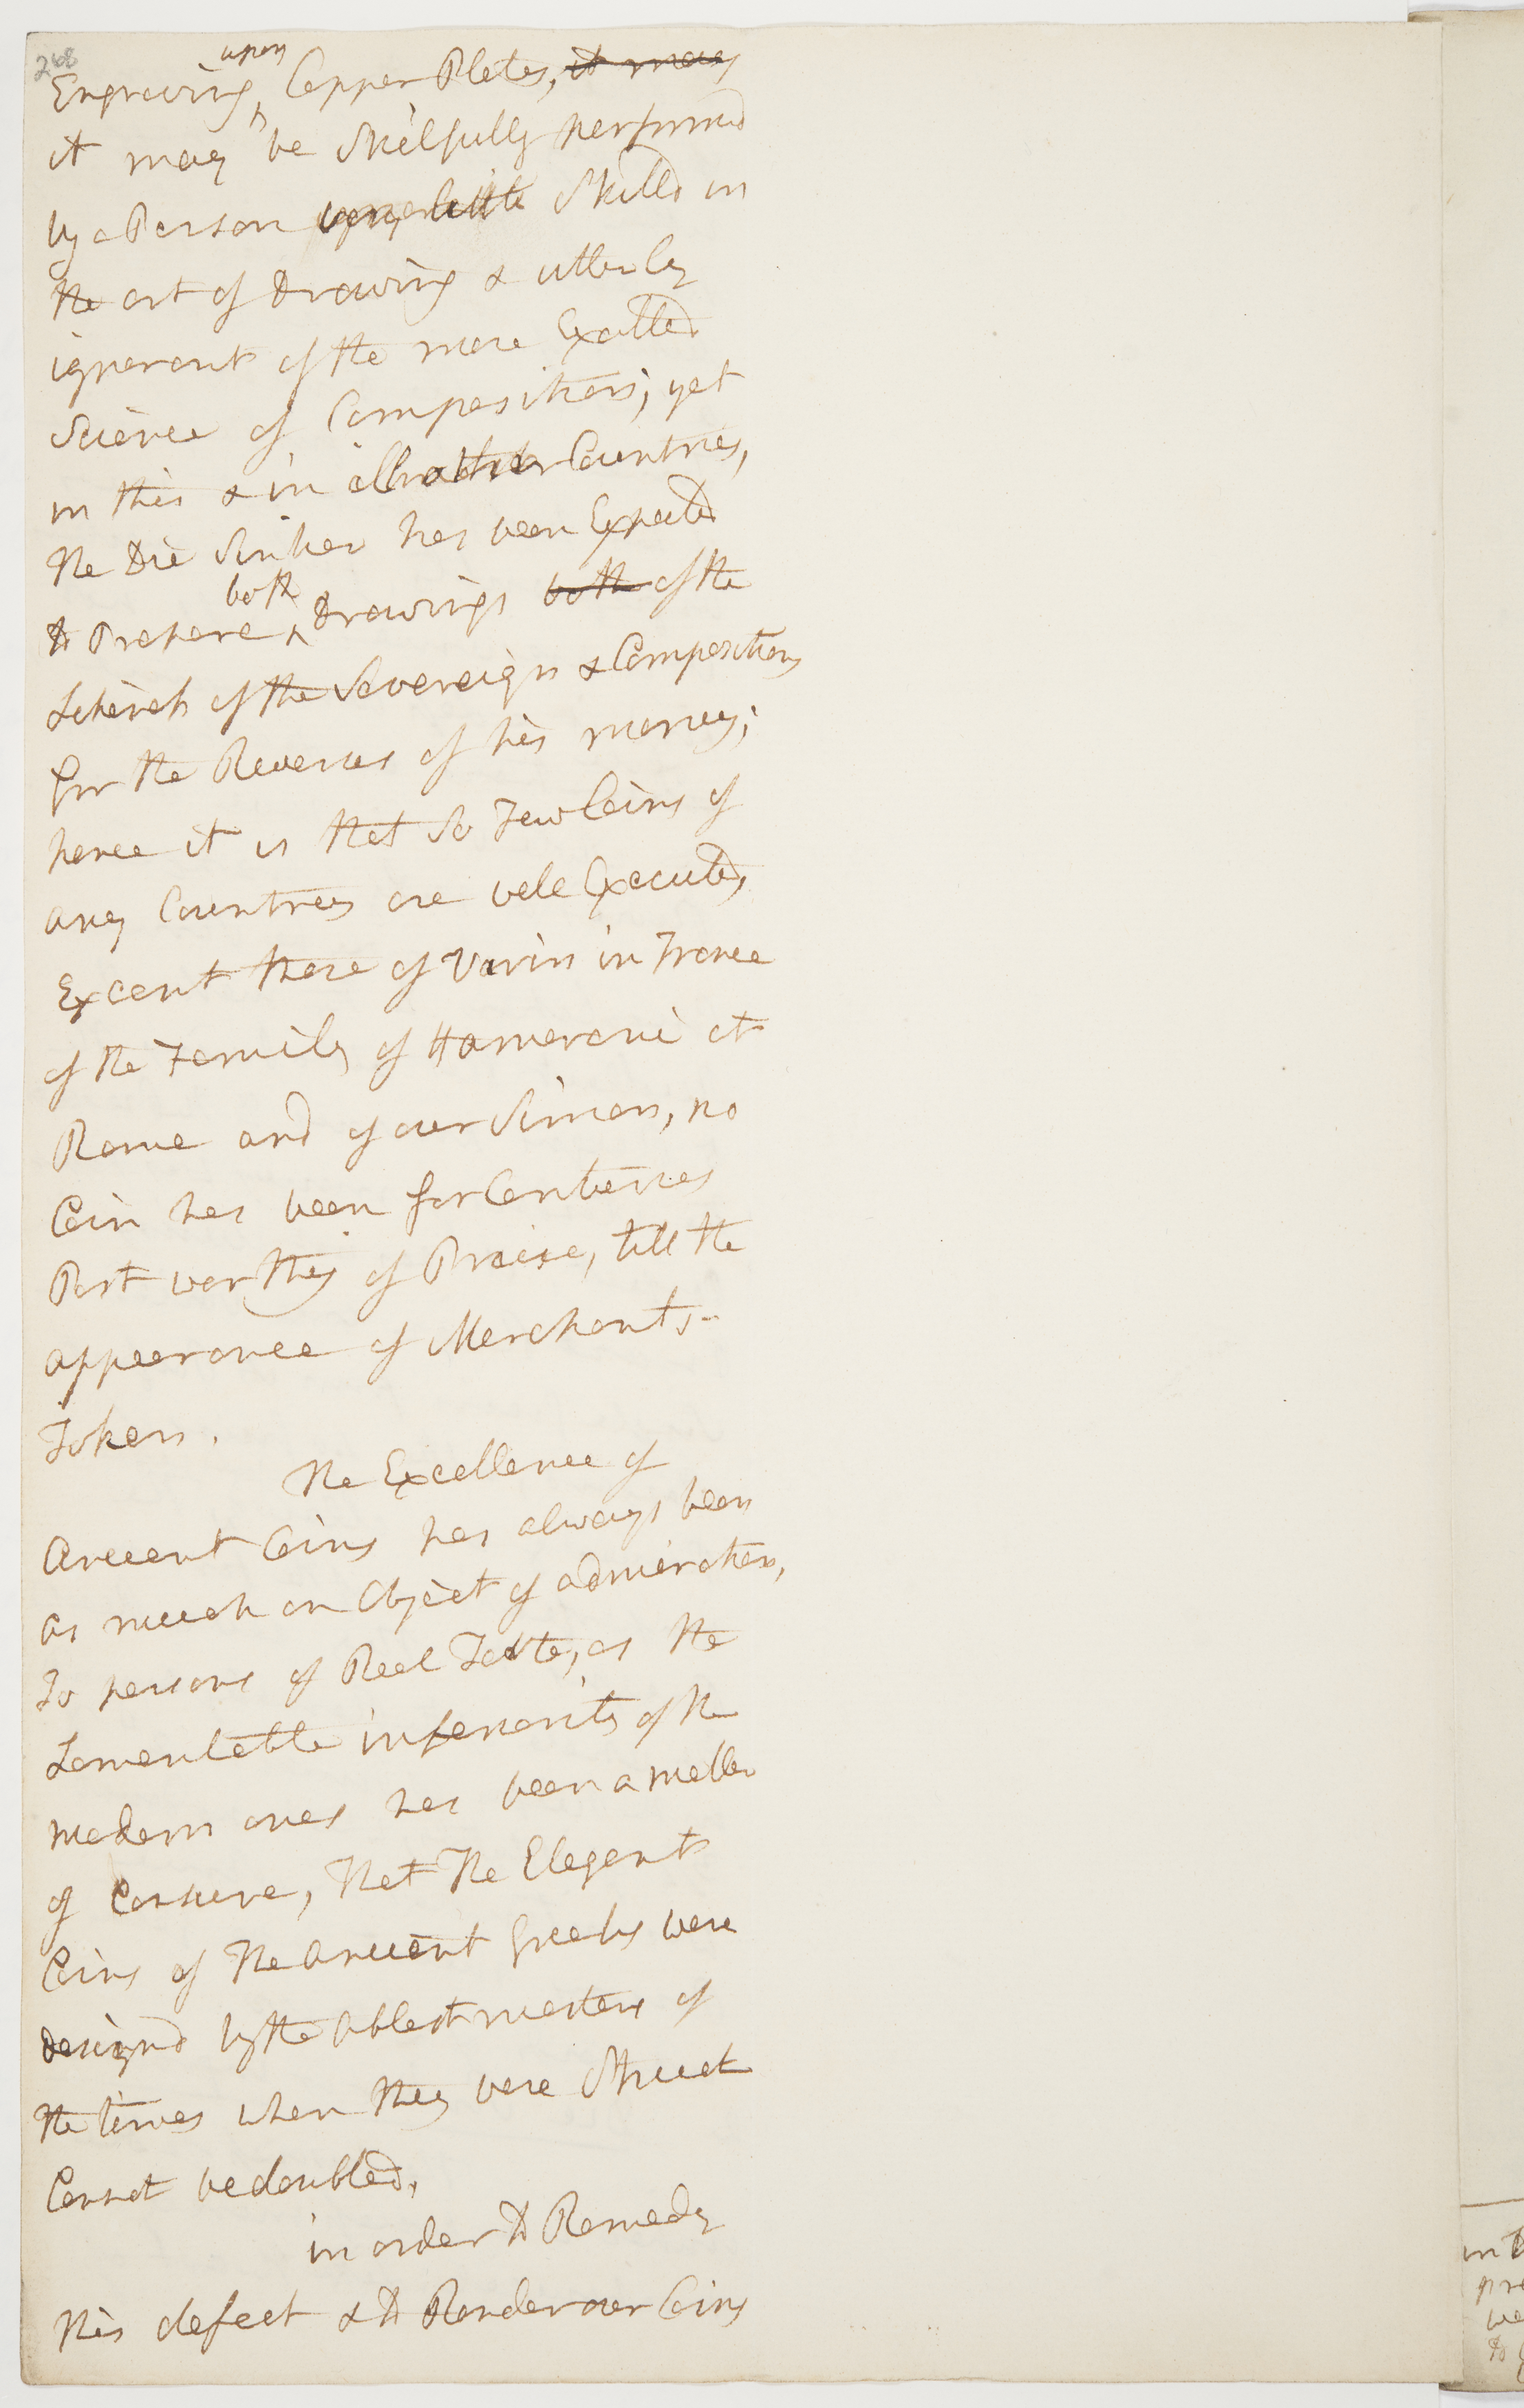 268
Engraving upon Copper Plates, it may
it may be Skilfully performd
by a Person very little Skilld in
the art of drawing & utterly
ignorant of the more Exalted
Science of Composition; yet
in this & in all other Countries,
the Die Sinker has been Expected
to Prepare both drawings both of the
Likeness of the Sovereign & Compositions
for the Reverses of his money;
hence it is that So Few Coins of
any Countrey are well Executed,
Except those of Varin in France
of the Family of Hamerani at
Rome and of our Simon, no
Coin has been for Centuries
Past worthy of Praise, till the
appearance of Merchants
Tokens.
The Excellence of
Ancient Coins has always been
as much an Object of admiration,
To persons of Real Taste, as the
Lamentable inferiority of the
modern ones has been a matter
of Censure, That The Elegant
Coins of The ancient Greeks were
designd by the ablest masters of
the times when they were Struck
Cannot be doubted,
in order to Remedy
this defect & to Render our Coins
in
pre
we
to